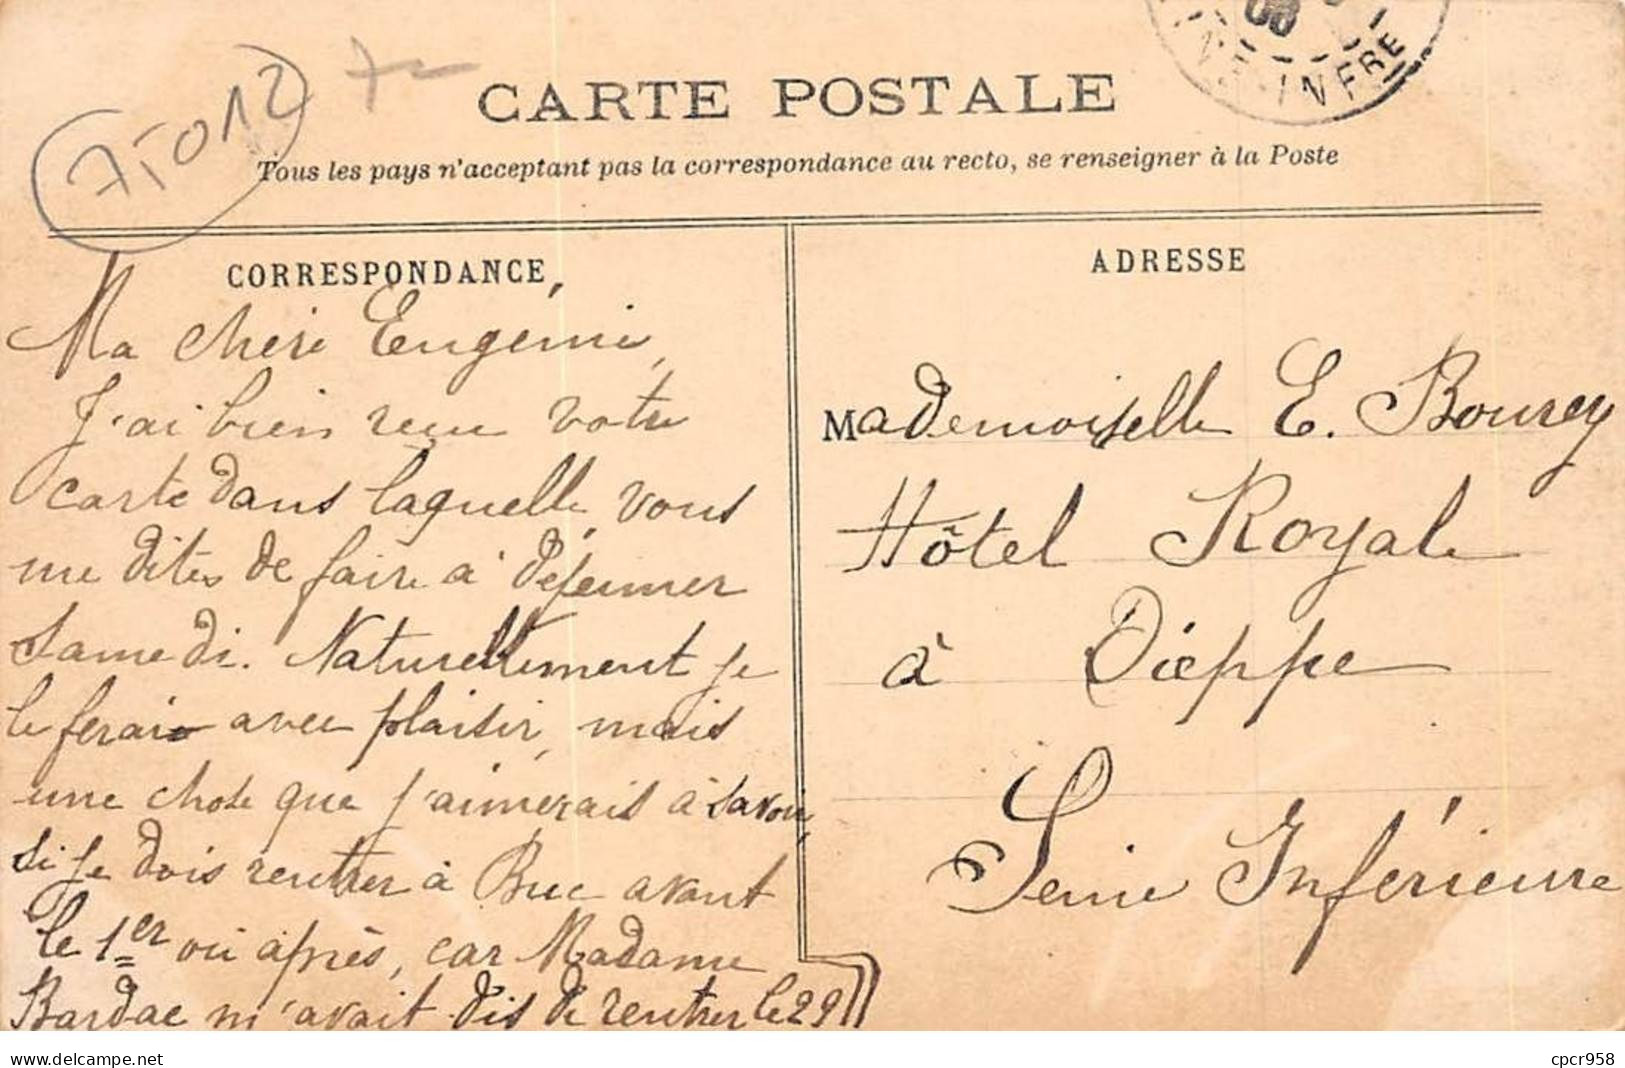 75012
CARTE POSTALE
Tous les pays n'acceptant pas la correspondance au recto, se renseigner à la Poste
CORRESPONDANCE
Ma chère Eugénie,
J'ai bien reçu votre
carte dans laquelle vous
me dites de faire à déjeuner
samedi. Naturellement je
le ferai avec plaisir, mais
une chose que j'aimerais à savoir,
si je dois rentrer à Buc avant
le 1er ou après, car Madame
Bardac m'avait dis de rentrer le 29
ADRESSE
Mademoiselle E. Bourey
Hôtel Royal
à Dieppe
Seine Inférieure
08
INFRE
delcampe.net
cpcr958